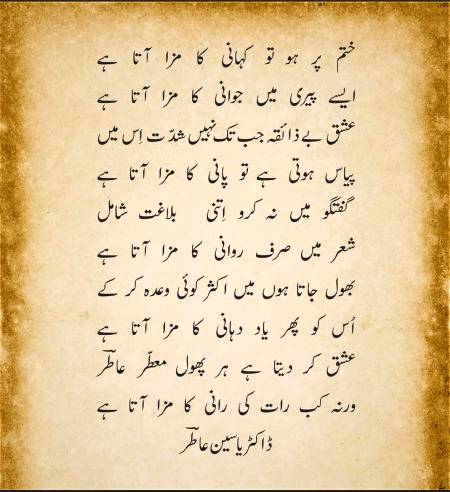 ختم پر ہو تو کہانی کا مزا آتا ہے
ایسے پیری میں جوانی کا مزا آتا ہے
عشق بے ذائقہ جب تک نہیں شدّت اِس میں
پیاس ہوتی ہے تو پانی کا مزا آتا ہے
گفتگو میں نہ کرو اِتنی بلاغت شامل
شعر میں صرف روانی کا مزا آتا ہے
بھول جاتا ہوں میں اکثر کوئی وعدہ کر کے
اُس کو پھر یاد دہانی کا مزا آتا ہے
عشق کر دیتا ہے ہر پھول معطّر عاطرؔ
ورنہ کب رات کی رانی کا مزا آتا ہے
ڈاکٹر یاسین عاطرؔ